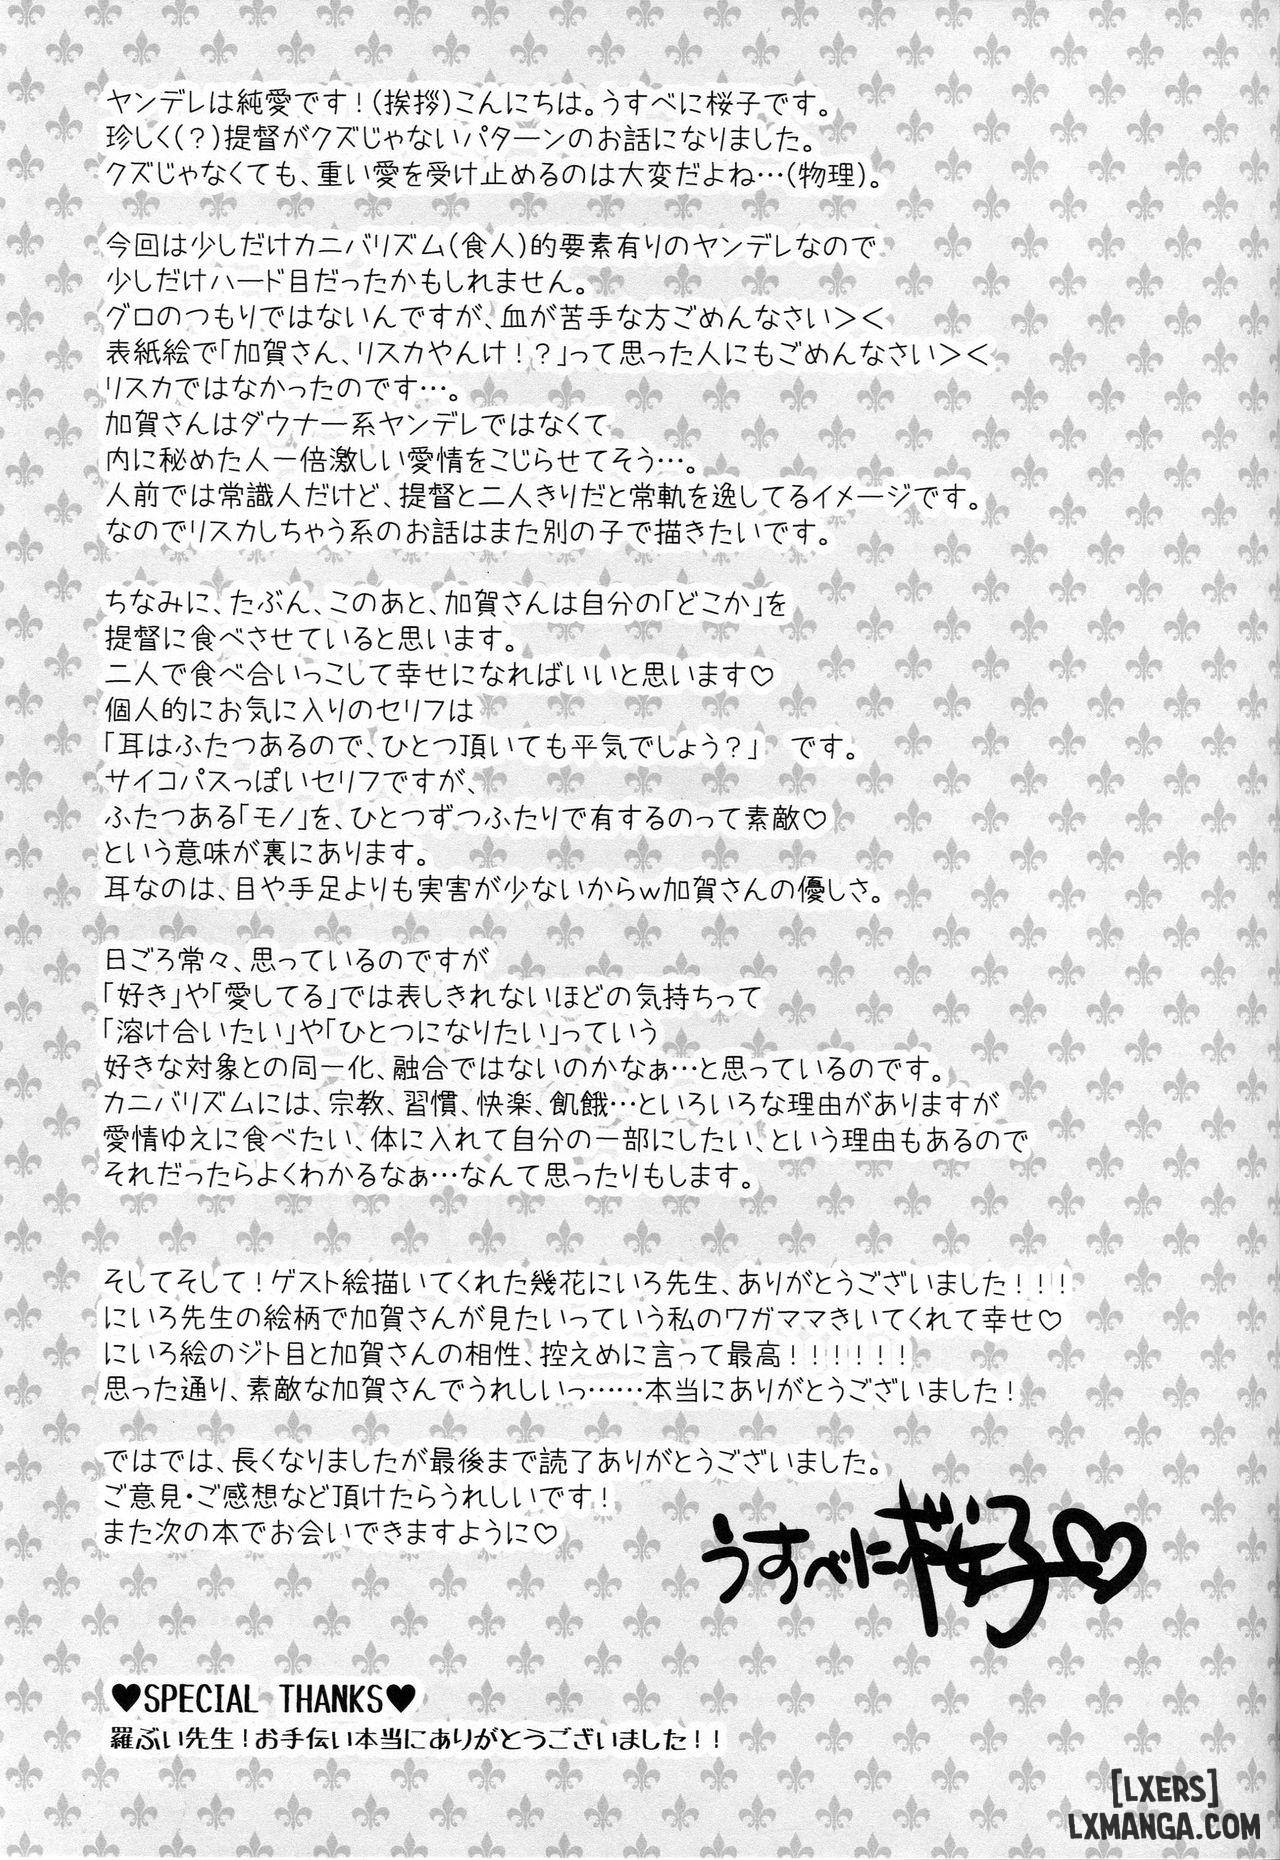 ヤンデレは純愛です！(挨拶)こんにちは。うすべに桜子です。
珍しく(？)提督がクズじゃないパターンのお話になりました。
クズじゃなくても、重い愛を受け止めるのは大変だよね…(物理)。
今回は少しだけカニバリズム(食人)的要素有りのヤンデレなので
少しだけハード目だったかもしれません。
グロのつもりではないんですが、血が苦手な方ごめんなさい＞＜
表紙絵で「加賀さん、リスカやんけ！？」って思った人にもごめんなさい＞＜
リスカではなかったのです…。
加賀さんはダウナー系ヤンデレではなくて
内に秘めた人一倍激しい愛情をこじらせてそう…。
人前では常識人だけど、提督と二人きりだと常軌を逸してるイメージです。
なのでリスカしちゃう系のお話はまた別の子で描きたいです。
ちなみに、たぶん、このあと、加賀さんは自分の「どこか」を
提督に食べさせていると思います。
二人で食べ合いっこして幸せになればいいと思います♡
個人的にお気に入りのセリフは
「耳はふたつあるので、ひとつ頂いても平気でしょう？」　です。
サイコパスっぽいセリフですが、
ふたつある「モノ」を、ひとつずつふたりで有するのって素敵♡
という意味が裏にあります。
耳なのは、目や手足よりも実害が少ないからｗ加賀さんの優しさ。
日ごろ常々、思っているのですが
「好き」や「愛してる」では表しきれないほどの気持ちって
「溶け合いたい」や「ひとつになりたい」っていう
好きな対象との同一化、融合ではないのかなぁ…と思っているのです。
カニバリズムには、宗教、習慣、快楽、飢餓…といろいろな理由がありますが
愛情ゆえに食べたい、体に入れて自分の一部にしたい、という理由もあるので
それだったらよくわかるなぁ…なんて思ったりもします。
そしてそして！ゲスト絵描いてくれた幾花にいろ先生、ありがとうございました！！！
にいろ先生の絵柄で加賀さんが見たいっていう私のワガママきいてくれて幸せ♡
にいろ絵のジト目と加賀さんの相性、控えめに言って最高！！！！！！
思った通り、素敵な加賀さんでうれしいっ……本当にありがとうございました！
ではでは、長くなりましたが最後まで読了ありがとうございました。
ご意見・ご感想など頂けたらうれしいです！
また次の本でお会いできますように♡
うすべに桜子♡
♥SPECIAL THANKS♥
羅ぶい先生！お手伝い本当にありがとうございました！！
[LXERS]
LXMANGA.COM